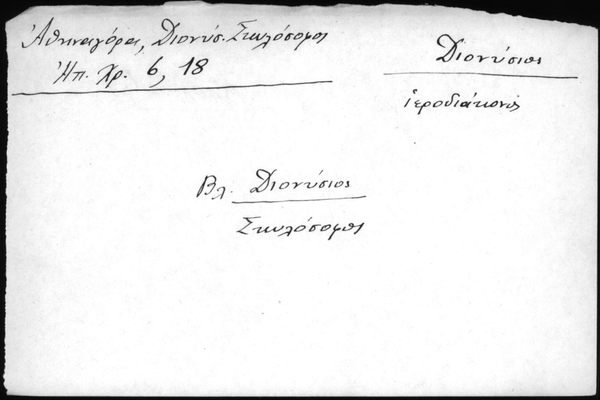 Ἀθηναγόρας, Διονύσ. Σκυλόσοφος
Ἠπ. Χρ. 6, 18
Διονύσιος
ἱεροδιάκονος
Βλ. Διονύσιος
Σκυλόσοφος